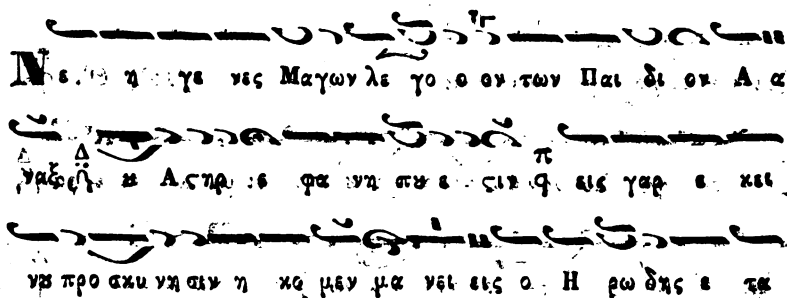 Νε η γε νες Μαγων λε γο ο ον των Παι δι ον Α α
ναξ ȣ Αςηρ ε φα νη πȣ ε ςιν εις γαρ ε κει
νȣ προ σκυ νη σιν η κο μεν μα νει εις ο Η ρω δης ε τα